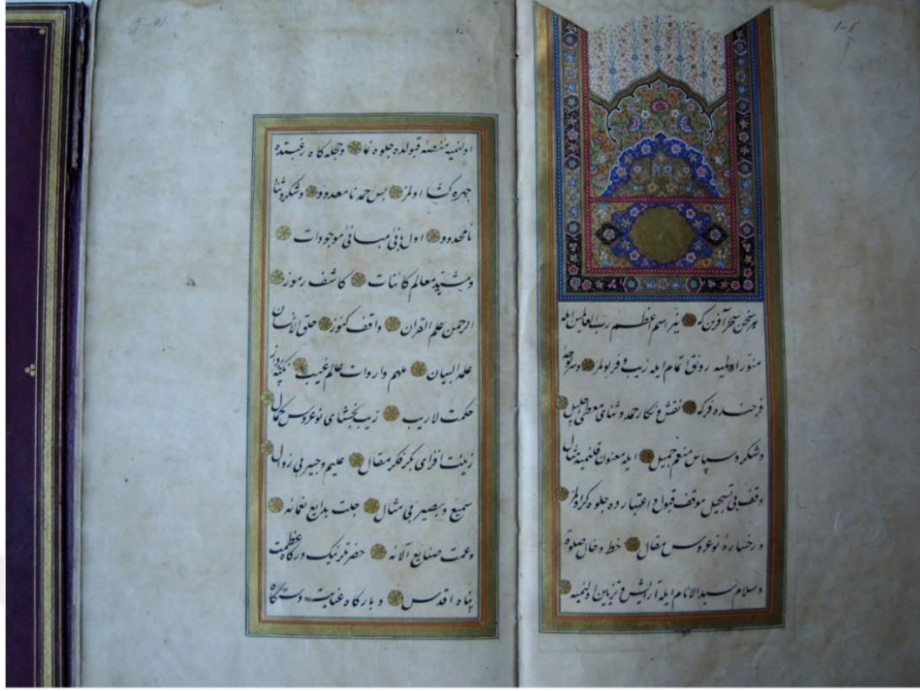 هر سخن سحر آفرین که نیر اسم اعظم رب العالمین ایله
منور اولمیه رونق تمام ایله زیب و فر بولمز و سرلوحهٔ
فرخنده فر که نقش و نکار حمد و ثنای معطی جلیل
و شکر و سپاس منعم جمیل ایله معنون قلنمیه مثال
وقف بی تسجیل موقف قبول و اعتبارده جلوه کر اولمز
و رخسارهٔ نوعروس مقال خط و خال صلوة
و سلام سید الانام ایله آرایش و تزیین اولنمیه
اولنمیه منصهٔ قبولده جلوه نما و حجله کاه رغبتده
چهره کشا اولمز پس حمد نامعدود و شکر و ثنا
نامحدود اول بانئ مبانئ موجودات
و مشید معالم کائنات کاشف رموز
الرحمن علم القران واقف کنوز خلق الانسان
علمه البیان ملهم واردات عالم غیب نکته پرداز
حکمت لاریب زیب بخشای نوعروس کمال
زینت افزای بکر فکر مقال علیم و خبیر بی زوال
سمیع و بصیر بی مثال جلت بدایع نعمائه
و عمت صنایع آلائه حضرتلرینک درکاه عظمت
پناه اقدس و بارکاه عنایت دستکاه